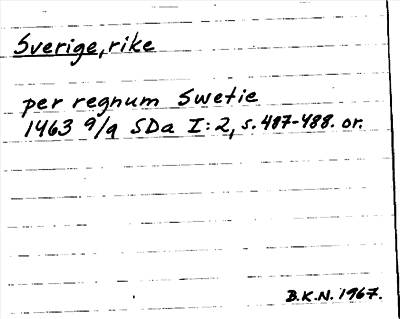 Sverige, rike
per regnum Swetie
1463 9/9 SDa I:2, s. 487-488. or.
B.K.N. 1967.